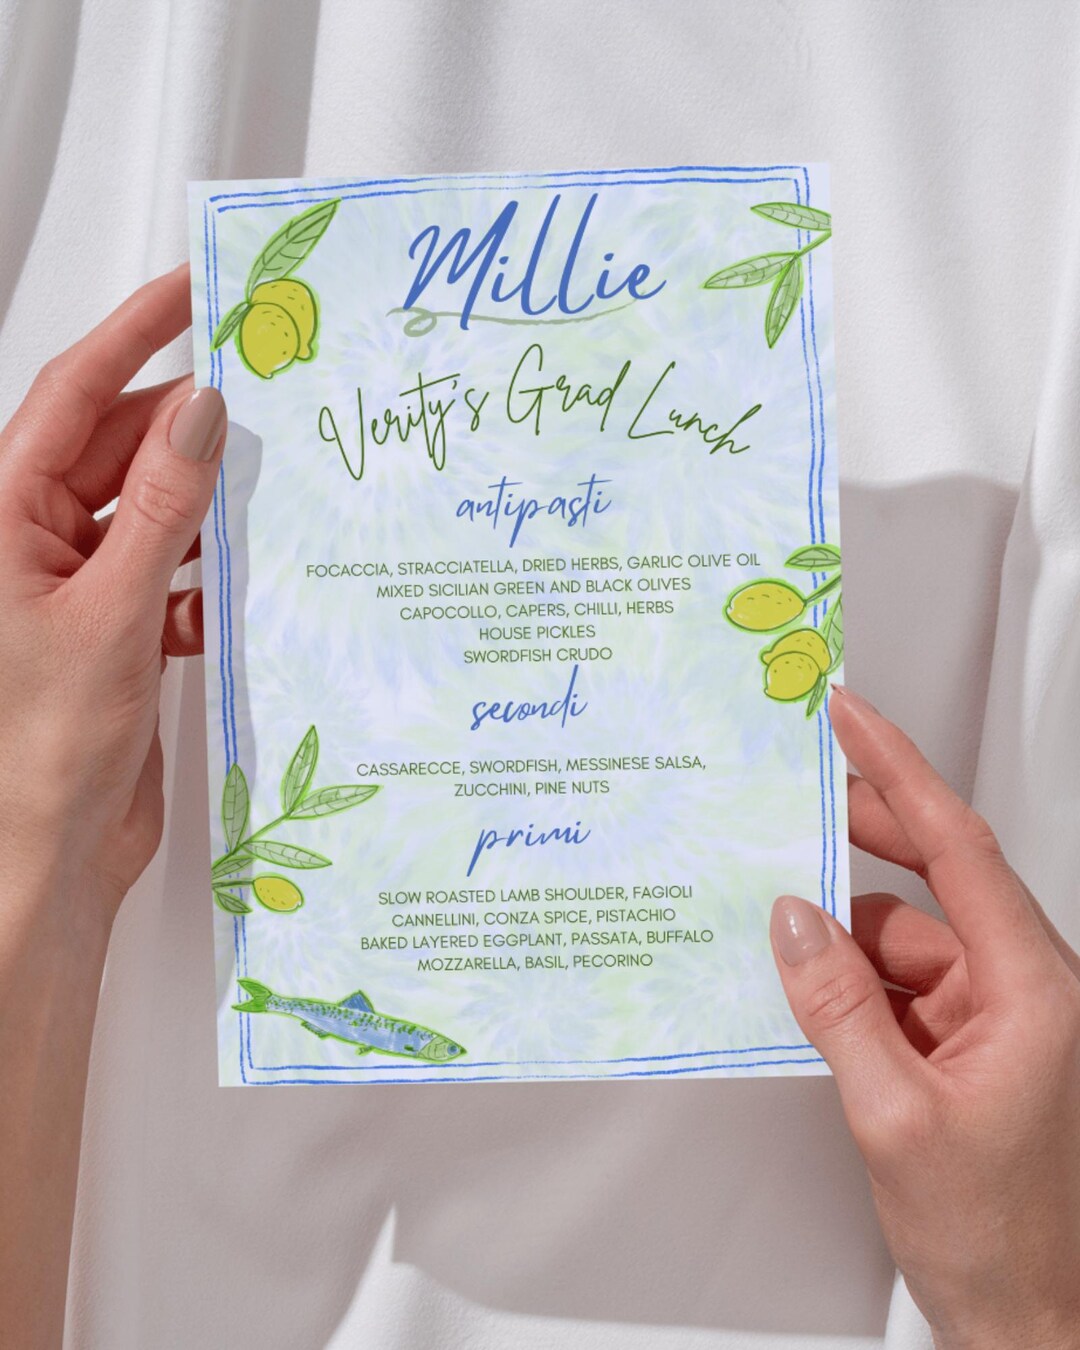 Millie
Verity's Grad Lunch
antipasti
FOCACCIA, STRACCIATELLA, DRIED HERBS, GARLIC OLIVE OIL
MIXED SICILIAN GREEN AND BLACK OLIVES
CAPOCOLLO, CAPERS, CHILLI, HERBS
HOUSE PICKLES
SWORDFISH CRUDO
secondi
CASSARECCE, SWORDFISH, MESSINESE SALSA,
ZUCCHINI, PINE NUTS
primi
SLOW ROASTED LAMB SHOULDER, FAGIOLI
CANNELLINI, CONZA SPICE, PISTACHIO
BAKED LAYERED EGGPLANT, PASSATA, BUFFALO
MOZZARELLA, BASIL, PECORINO